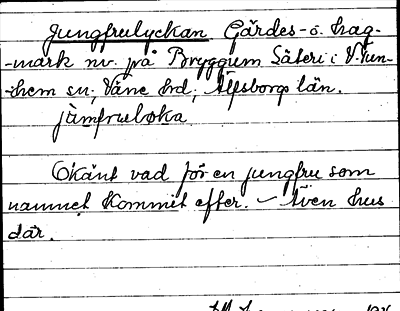 Jungfrulyckan Gärdes- o. hag-
-mark nv. på Bryggum Säteri i V. Tun-
-hem sn; Väne hd; Älfsborgs län.
jämfruløka
Okänt vad för en jungfru som
namnet kommit efter. – Även hus
där.